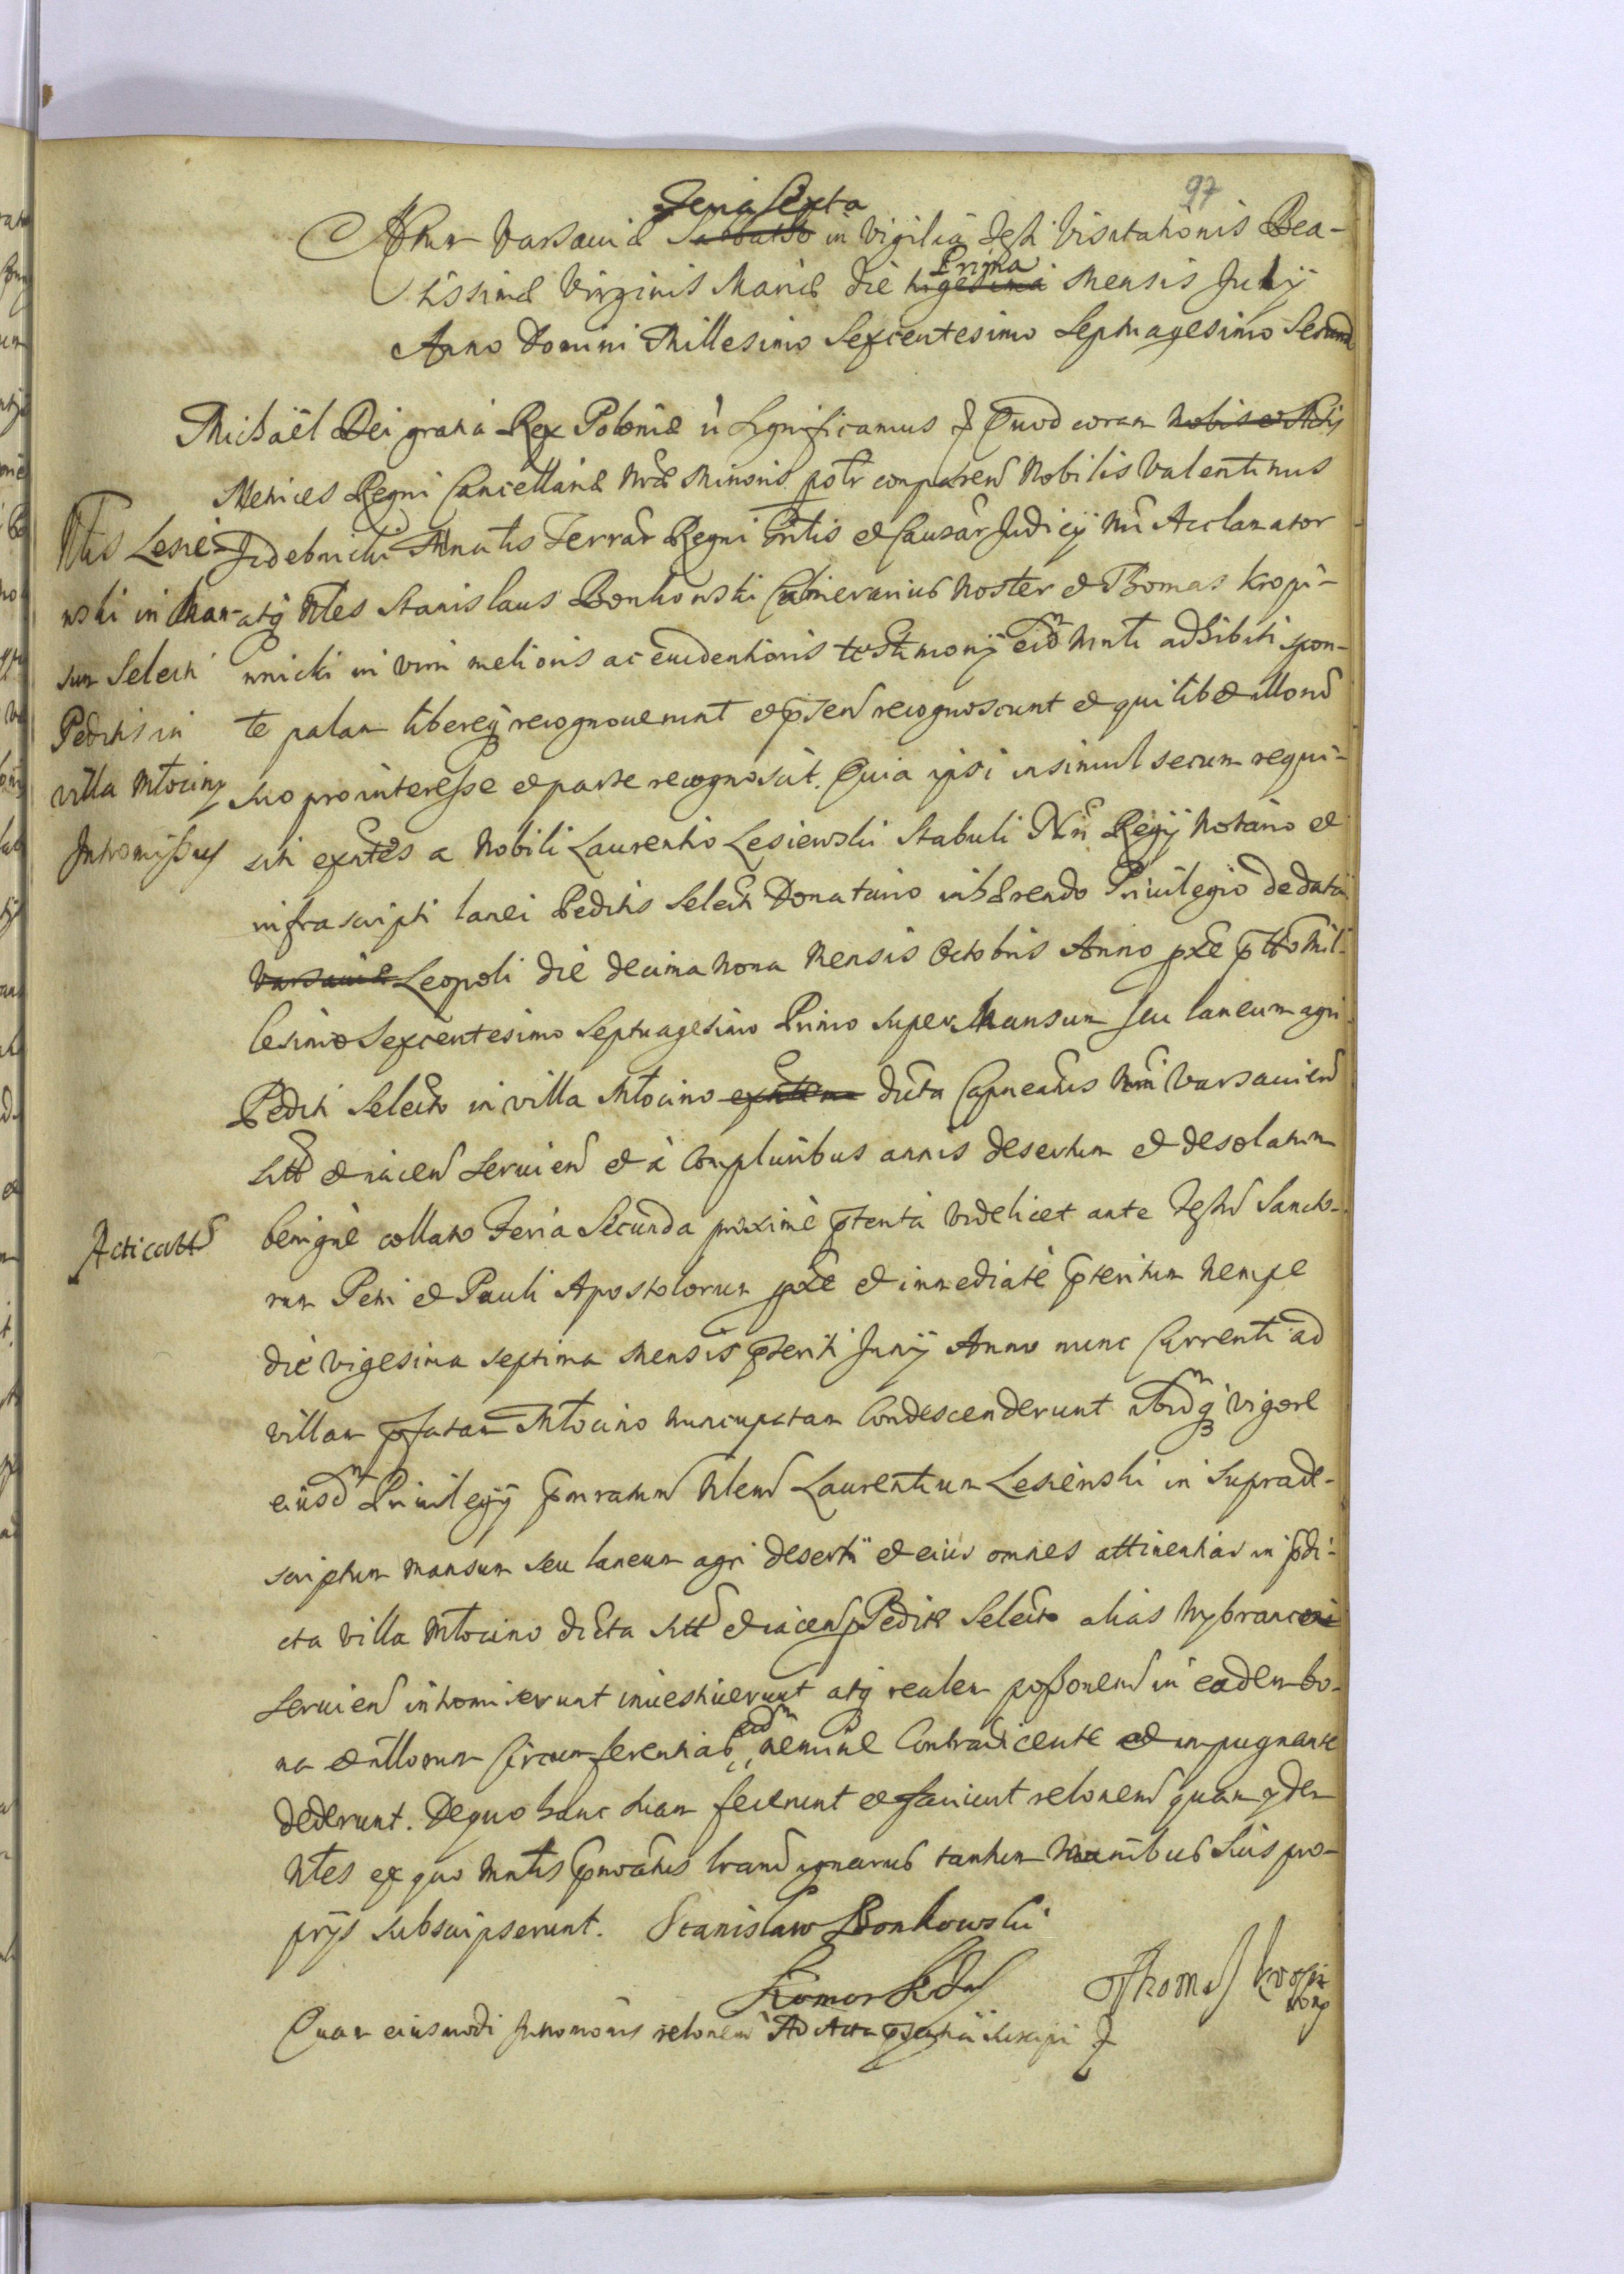 97
Feria Sexta
Actum Varsaviæ Sabbatho in Vigilia Festi Visitationis Bea-
Prima
tissimæ Virginis Mariæ die vigesima Mensis July
Anno Domini Millesimo Sexcentesimo Septuagesimo Secundo
Michaël Dei gratia Rex Poloniæ Significamus Quod coram nobis et Actis
Metrices Regni Cancellariæ Nræ Minoris psntr comparen Nobilis Valentinus
Terrar Regni Gntis et Causar Judicij Nri Acclamator
atq Nles Stanislaus Bonkowski Camerarius Noster et Thomas Kropi-
wnicki in vim melioris ac euidentioris testimonij eidm Mnti adhibiti spon-
te palam libereq recognouerunt et psen recognoscunt et quilibet illorum
suo pro interesse et parte recognoscit. Quia ipsi insimul secum requi-
siti exntes a Nobili Laurentio Lesiewski Stabuli Nri Regij Notario et
infrascripti lanei Peditis Selecti Donatario inhærendo Priuilegio de data
Varsauiæ Leopoli die decima nona Mensis Octobris Anno pxe ptto Mil-
lesimo Sexcentesimo Septuagesimo Primo super Mansum seu laneum agri
Pediti Selecto in villa Młocino dicta Capneatus Nri Varsauien
sitt et iacen seruien et à Compluribus annis desertum et desolatum
benignè collato Feria Secunda proximè ptenta videlicet ante Festum Sancto-
rum Petri et Pauli Apostolorum pxe et immediatè pteritum nempe
die vigesima septima Mensis pteriti Junij Anno nunc Currenti ad
villam pfatam Młocino nuncupatam Condescenderunt ibidmq vigore
eiusdm Priuilegij pmratum Nlem Laurentium Lesiewski in supradi-
scriptum mansum seu laneum agri deserti et eius omnes attinentias in pdi-
cta villa Młocino dicta sitt et iacen Pediti Selecto alias Wybrancowi
seruien intromiserunt inuestiuerunt atq realem possonem in eadem bo-
eidm
na et illorum Circumferentias nemine Contradicente et impugnante
dederunt. De quo hanc suam fecerunt et faciunt relonem quam
Nles ex quo Mntis tantum Manibus suis pro-
prijs subscripserunt. Stanisław Bonkowski
Komor KJM
Thomas Kropiw
nicky
Quam eiusmodi Intromonis relonem Ad Acta psentia suscepi
Nlis Lesie-
wski in Man-
sum Selecti
Peditis in
villa Młociny
Intromissus
Acticatt